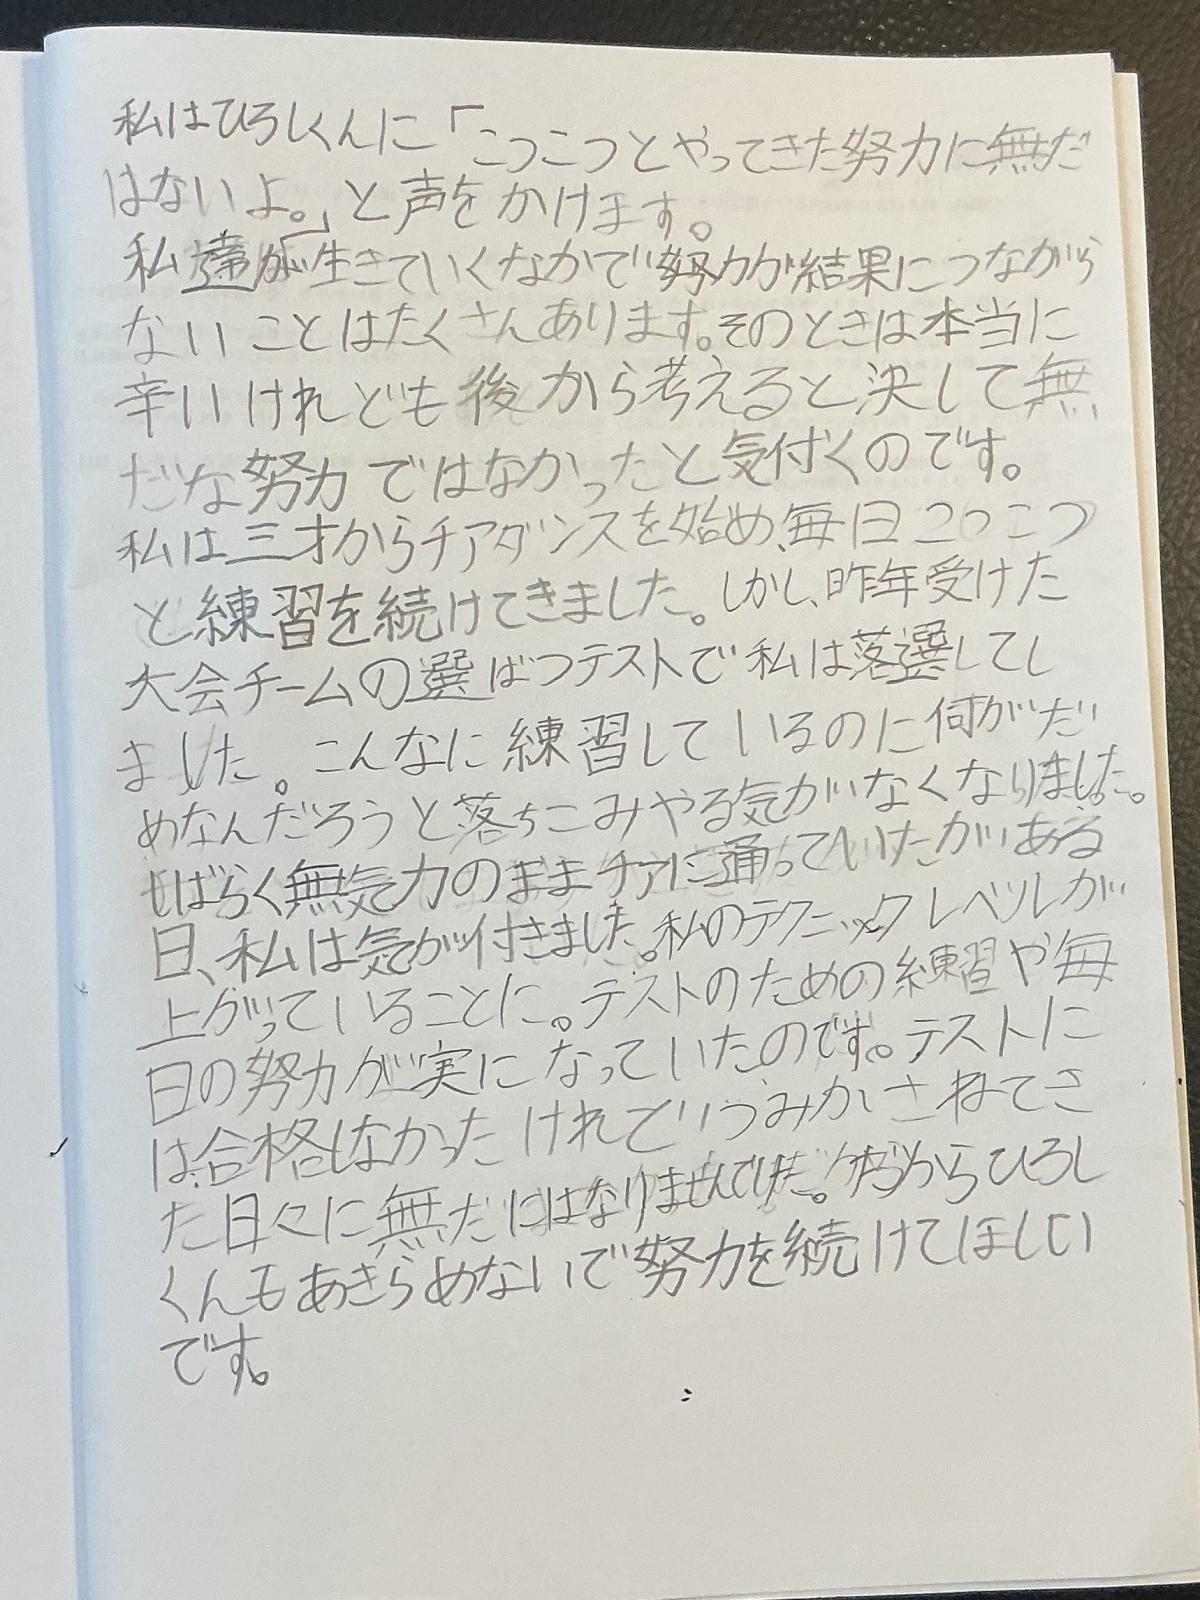 私はひろしくんに「こつこつとやってきた努力に無だ
はないよ。」と声をかけます。
私達が生きていくなかで努力が結果につながら
ないことはたくさんあります。そのときは本当に
辛いけれども後から考えると決して無
だな努力ではなかったと気付くのです。
私は三才からチアダンスを始め、毎日こつこつ
と練習を続けてきました。しかし、昨年受けた
大会チームの選ばつテストで私は落選してし
ました。こんなに練習しているのに何がだ
めなんだろうと落ちこみやる気がなくなりました。
しばらく無気力のままチアに通っていたがある
日、私は気が付きました。私のテクニックレベルが
上がっていることに。テストのための練習や毎
日の努力が実になっていたのです。テストに
は合格しなかったけれどつみかさねてき
た日々に無だにはなりませんでした。だからひろし
くんもあきらめないで努力を続けてほしい
です。